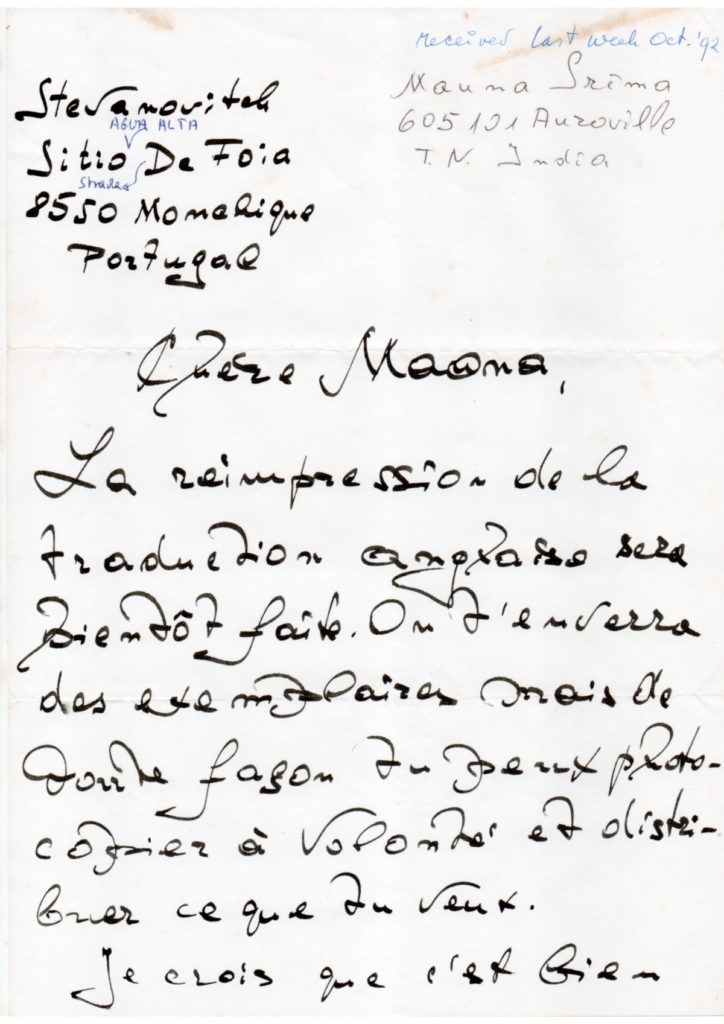 received last week Oct. '92
Mauna Srima
605101 Auroville
T.N. India
Stevanovitch
AGUA ALTA
Sitio De Foia
Strada
8550 Monchique
Portugal
Chère Maona,
La reimpression de la
traduction anglaise sera
bientôt faite. On t'enverra
des exemplaires mais de
toute façon tu peux photo-
copier à volonté et distri-
buer ce que tu veux.
Je crois que c'est bien